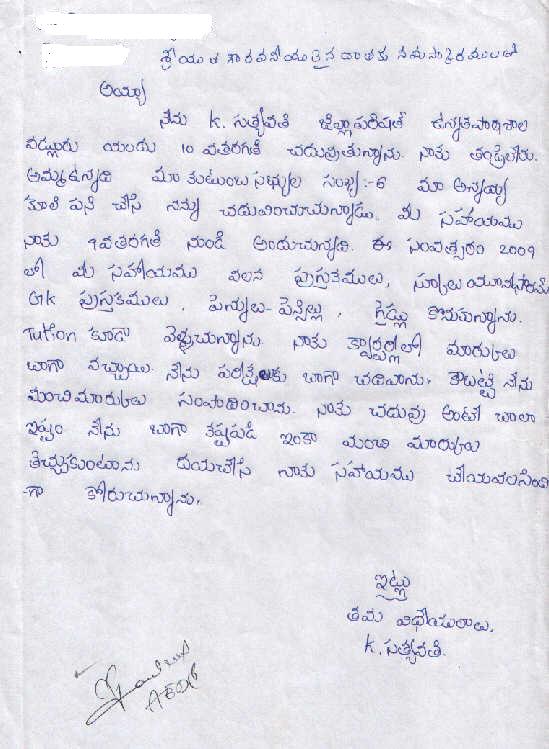 శ్రీయుత గౌరవనీయులైన దాతకు నమస్కారములతో
అయ్యా
నేను K. సత్యవతి జిల్లాపరిషత్ ఉన్నతపాఠశాల
వడ్లూరు యందు 10 వతరగతి చదువుతున్నాను. నాకు తండ్రిలేరు.
అమ్మఉన్నది మా కుటుంబ సభ్యుల సంఖ్య :- 6 మా అన్నయ్య
కూలి పని చేసి నన్ను చదువించుచున్నాడు. మీ సహాయము
నాకు 9వతరగతి నుండి అందుచున్నది. ఈ సంవత్సరం 2009
లో మీ సహాయము వలన పుస్తకములు, స్కూలు యూనిఫారమ్
GK పుస్తకములు, పెన్నులు- పెన్సిల్లు, గ్రైడ్లు కొనుకున్నాను.
Tution కూడా వెళ్ళుచున్నాను. నాకు క్వార్టర్లీలో మార్కులు
బాగా వచ్చాయి. నేను పరీక్షలకు బాగా చదివాను. కాబట్టి నేను
మంచిమార్కులు సంపాదించాను. నాకు చదువు అంటే చాలా
ఇష్టం నేను బాగా కష్టపడి ఇంకా మంచి మార్కులు
తెచ్చుకుంటాను దయచేసి నాకు సహాయము చేయవలసింది
-గా కోరుచున్నాను.
ఇట్లు
తమ విధేయురాలు.
K. సత్యవతి.